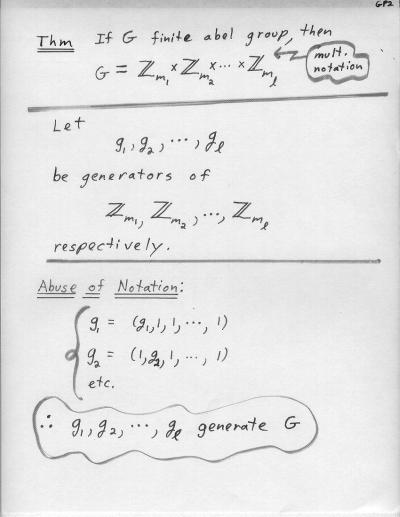 GP2
Thm If G finite abel group, then
G = ℤ_m₁ × ℤ_m₂ × ⋯ × ℤ_mℓ
mult.
notation
Let
g₁, g₂, ⋯, gℓ
be generators of
ℤ_m₁, ℤ_m₂, ⋯, ℤ_mℓ
respectively.
Abuse of Notation:
g₁ = (g₁, 1, 1, ⋯, 1)
g₂ = (1, g₂, 1, ⋯, 1)
etc.
∴ g₁, g₂, ⋯, gℓ generate G